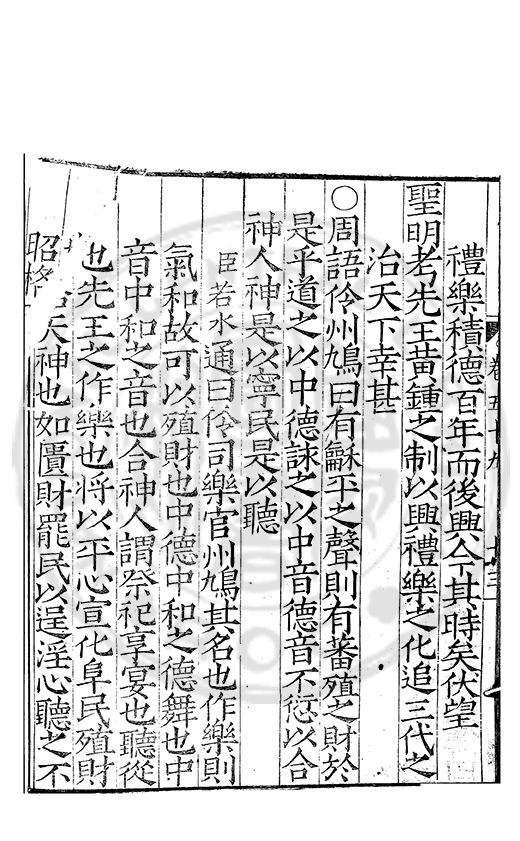 禮樂積德百年而後興今其時矣伏望
聖明考先王黃鍾之制以興禮樂之化追三代之
治天下幸甚
○周語伶州鳩曰有龢平之聲則有蕃殖之財於
是乎道之以中德詠之以中音德音不愆以合
神人神是以寧民是以聽
臣若水通曰伶司樂官州鳩其名也作樂則
氣和故可以殖財也中德中和之德舞也中
音中和之音也合神人謂祭祀享宴也聽從
也先王之作樂也將以平心宣化阜民殖財
昭格天神也如匱財罷民以逞淫心聽之不
卷五十九